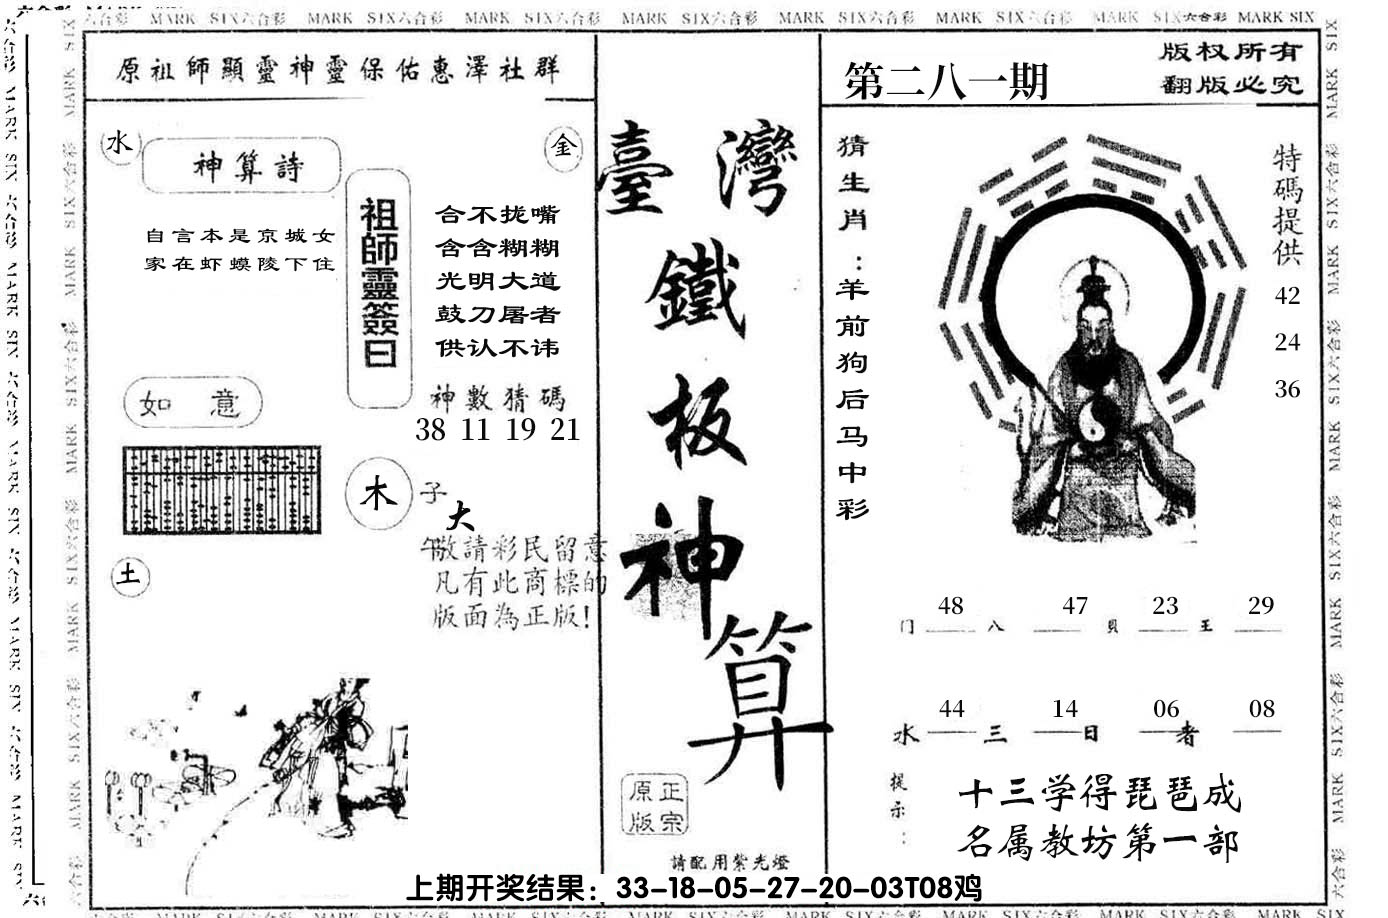 六合彩 MARK SIX六合彩 MARK SIX六合彩 MARK SIX六合彩 MARK SIX六合彩 MARK SIX六合彩 MARK SIX六合彩 MARK SIX六合彩 MARK SIX
原祖師顯靈神靈保佑惠澤社群
水
神算詩
金
自言本是京城女
家在虾蟆陵下住
祖師靈簽曰
合不拢嘴
含含糊糊
光明大道
鼓刀屠者
供认不讳
神數猜碼
38 11 19 21
如意
木
子
大
午
敬請彩民留意
凡有此商標的
版面為正版!
土
臺灣
鐵
板
神
算
正宗
原版
請配用紫光燈
第二八一期
版权所有
翻版必究
猜生肖：羊前狗后马中彩
特碼提供
42
24
36
48 47 23 29
门 八 貝 王
44 14 06 08
水 三 日 者
提示：
十三学得琵琶成
名属教坊第一部
上期开奖结果：33-18-05-27-20-03T08鸡